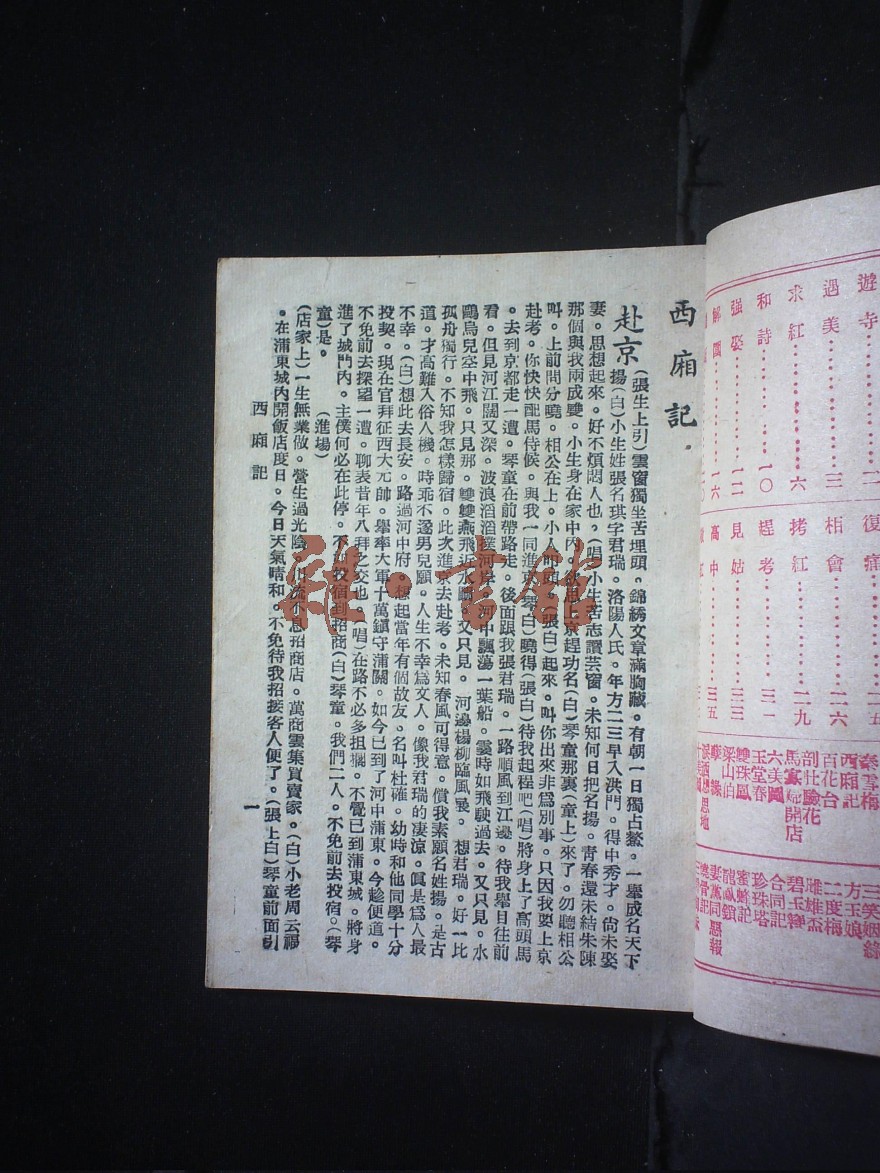 西廂記．
赴京
(張生上引)雲窗獨坐苦埋頭。錦綉文章滿胸臟。有朝一日獨占鰲。一舉成名天下
揚(白)小生姓張名琪字君瑞。洛陽人氏。年方二三早入洪門。得中秀才。尙未娶
妻。思想起來。好不煩悶人也。(唱)小生苦志讀芸窗。未知何日把名揚。青春還未結朱陳
那個與我兩成雙。小生身在家中內。欲思上京趕功名(白)琴童那裏(童上)來了。勿聽相公
叫。上前問分曉。相公在上。小人叩頭。(張白)起來。叫你出來非爲別事。只因我要上京
赴考。你快快配馬侍候。與我一同進京(琴白)曉得(張白)待我起程吧(唱)將身上了高頭馬
。去到京都走一遭。琴童在前帶路走。後面跟我張君瑞。一路順風到江邊。待我舉目往前
看。但見河江闊又深。波浪滔滔撲河岸。河中飄蕩一葉船。霎時如飛駛過去。又只見。水
鷗鳥兒空中飛。只見那。雙雙燕飛近水 又只見。河邊楊柳臨風曼。想君瑞。好一比
孤舟獨行。不知我怎樣歸宿。此次進京去赴考。未知春風可得意。償我素願名姓揚。是古
道。才高難入俗人機。時乖不遂男兒願。人生不幸爲文人。像我君瑞的凄涼。眞是爲人最
不幸。(白)想此去長安。路過河中府。想起當年有個故友。名叫杜確。幼時和他同學十分
投契。現在官拜征西大元帥。舉率大軍十萬鎭守蒲關。如今已到了河中蒲東。今趁便道。
不免前去探望一遭。聊表昔年八拜之交也。(唱)在路不必多担擱。不覺已到蒲東城。將身
進了城門內。主僕何必在此停。不如投宿到招商(白)琴童。我們二人。不免前去投宿。(琴
童)是。　(進場)
(店家上)一生無業做。營生過光陰。川流不息招商店。萬商雲集買賣家。(白)小老周云福
。在蒲東城內開飯店度日。今日天氣晴和。不免待我招接客人便了。(張上白)琴童前面引
西廂記　一
遊寺 二
遇美 三
求紅 六
和詩 一〇
強娶 一二
解圍 一六
復
相會 二六
拷紅 二九
趕考 三一
見姑 三三
高中 三五
秦雪梅
西廂記
百花台
剖肚驗花
馬寡婦開店
六美圖
玉堂春
雙珠鳳
梁山伯
三笑姻緣
方玉娘
二度梅
雌雄盃
碧玉簪
合同記
珍珠塔
蜜蜂記
妻黨同惡報
雜·書館